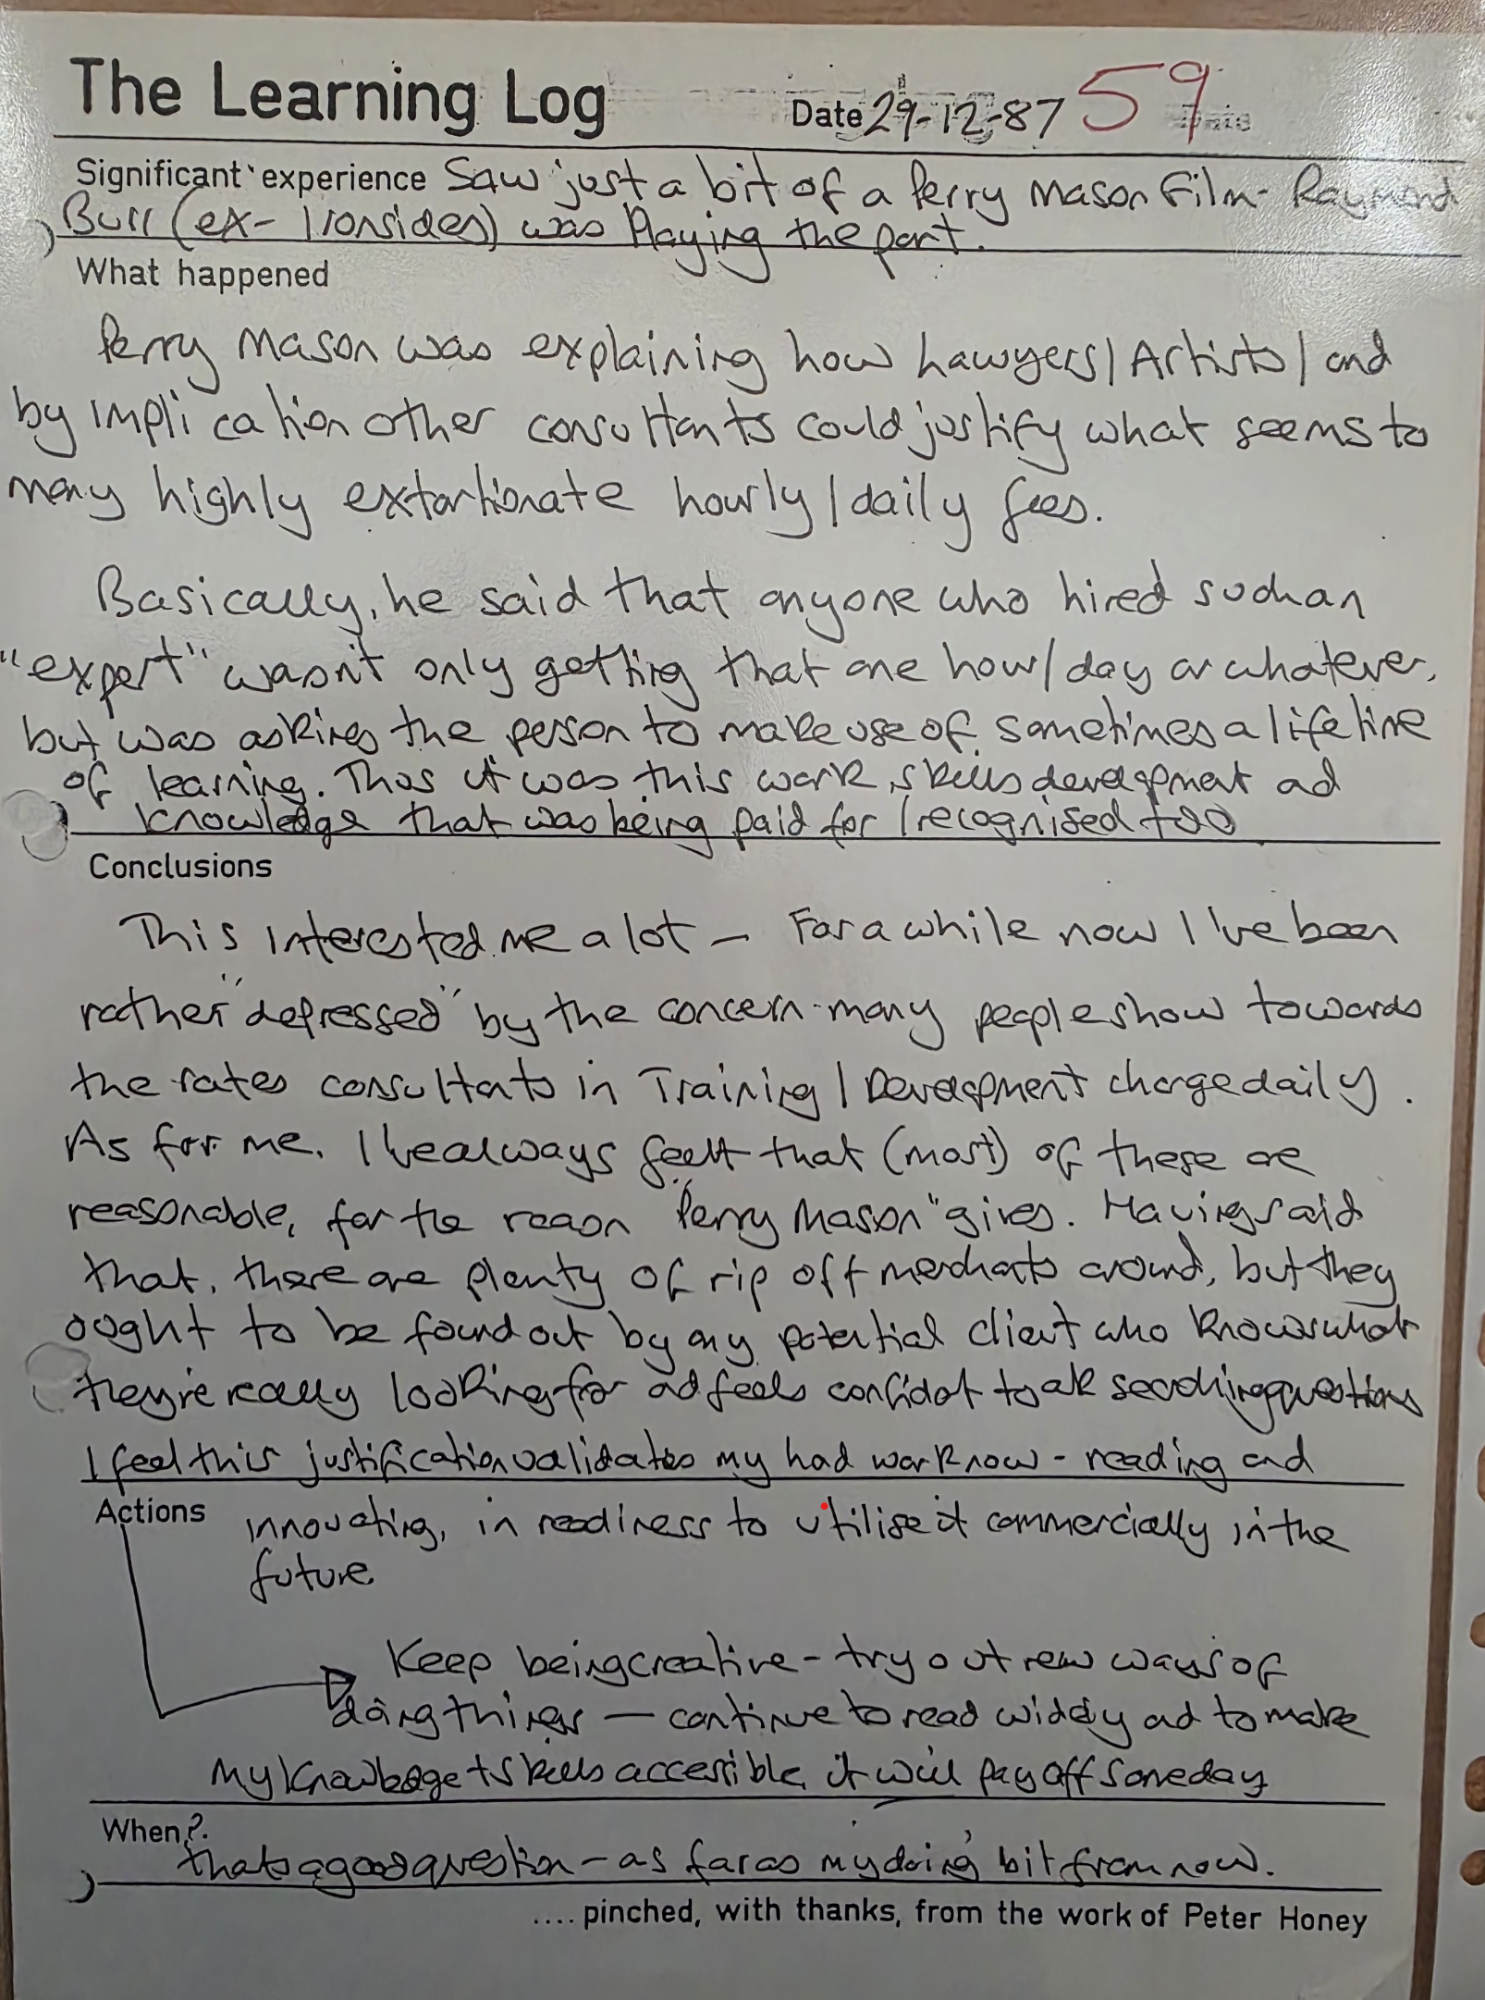 The Learning Log Date 29-12-87 59
Significant experience Saw just a bit of a Perry Mason Film - Raymond
Burr (ex- Ironsides) was Playing the part.
What happened
Perry Mason was explaining how Lawyers/Artists/and
by implication other consultants could justify what seems to
many highly extortionate hourly/daily fees.
Basically, he said that anyone who hired such an
"expert" wasn't only getting that one hour/day or whatever,
but was asking the person to make use of sometimes a lifetime
of learning. Thus it was this work, skills development ad
knowledge that was being paid for/recognised too
Conclusions
This interested me a lot - For a while now I've been
rather "depressed" by the concern many people show towards
the rates consultants in Training/Development charge daily.
As for me, I've always feelt that (most) of these are
reasonable, for the reason "Perry Mason" gives. Having said
that, there are plenty of rip off merchants around, but they
ought to be found out by any potential client who knows what
they're really looking for ad feels confidat to ask searching questions
I feel this justification validates my hard work now - reading and
Actions innovating, in readiness to utilise it commercially in the
future
Keep being creative - try out new ways of
doing things - continue to read widely ad to make
my knowledge + skills accessible, it will pay off someday
When?.
thats a good question - as far as my 'doing' bit from now.
.... pinched, with thanks, from the work of Peter Honey